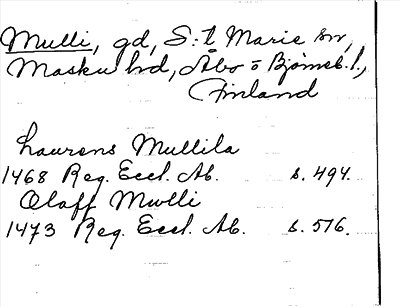 Mulli, gd, S:t Marie sn,
Masku hd, Åbo o Björneb. l.,
Finland
Laurens Mullila
1468 Reg. Eccl. Ab. s. 494.
Olaff Mwlli
1473 Reg. Eccl. Ab. s. 576.